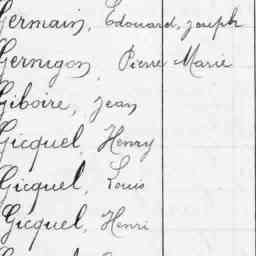 Germain, Edouard, Joseph
Gernigon, Pierre Marie
Giboire, Jean
Gicquel, Henry
Gicquel, Louis
Gicquel, Henri